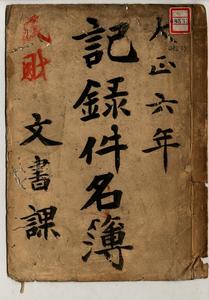 大正六年
記録件名簿
文書課
民財